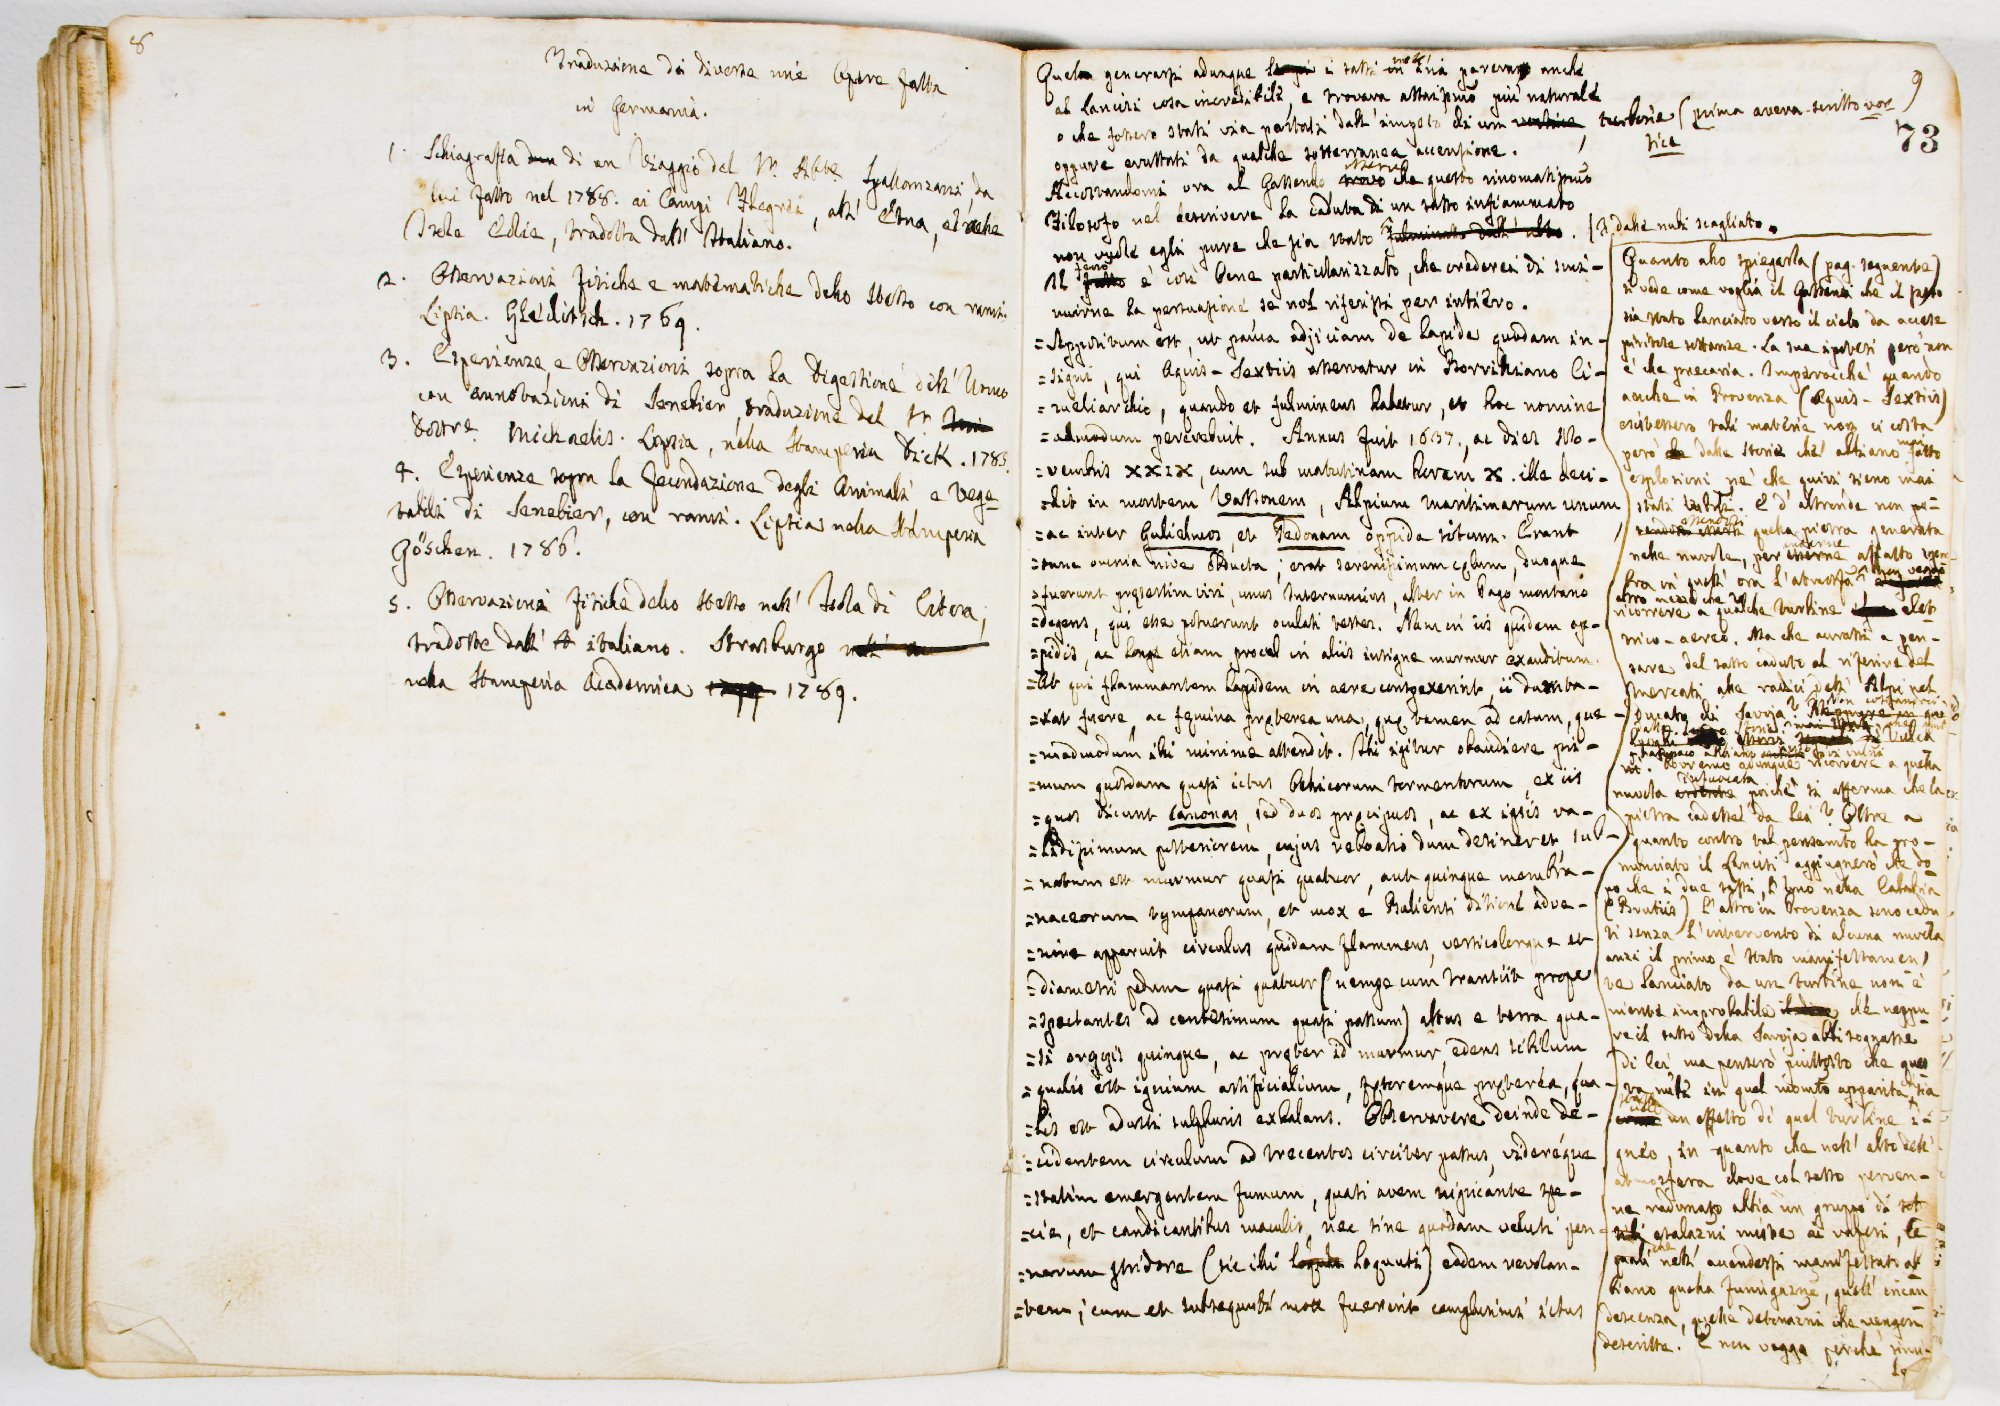 8
Traduzione di diverse mie Opere fatta
in Germania.
1. Schiagrafia di un Viaggio del Sr. Abbe Spallanzani, da
lui fatto nel 1788. ai Campi Flegrei, all' Etna, ed anche
Isole Eolie, tradotta dall' Italiano.
2. Osservazioni fisiche e matematiche dello stesso con rami.
Lipsia. Gleditsch. 1769.
3. Esperienze e Osservazioni sopra la Digestione dell' Uomo
con annotazioni di Senebier, traduzione del Sr
Dottre Michaelis. Lipsia, nella Stamperia Dick. 1785.
4. Esperienze sopra la fecondazione degli Animali e Vege-
tabili di Senebier, con rami. Lipsia nella Stamperia
Göschen. 1786.
5. Osservazioni fisiche dello stesso nell' Isola di Citera,
tradotte dall' italiano. Strasburgo
nella Stamperia Academica 1789.
9
73
generarsi adunque i sassi in aria pareva anche
al Lancisi cosa incredibile, e trovava assaissimo più naturale
o che fossero stati via portati dall' impeto di un vortice,
turbine (prima aveva scritto vor
tice
oppure eruttati da qualche sotterranea accensione.
Accostandomi ora al Gassendo che questo rinomatissimo
Filosofo nel descrivere la caduta di un sasso infiammato
non vuole egli pure che sia stato fulminato dall' alto.
dalle nubi scagliato.
Il fatto è così bene particolarizzato, che crederei di smi-
nuirne la persuasione se nol riferissi per intiero.
=Appositum est, ut pauca adjiciam de lapide quodam in-
=signi, qui Aquis-Sextiis asservatur in Borrilliano Ci-
=meliarchio, quando et fulmineus habetur, et hoc nomine
=admodum percrebuit. Annus fuit 1637., ac dies No-
=vembris XXIX, cum sub matutinam horam X. ille deci-
=dit in montem Vassonem, Alpium maritimarum unum,
=ac inter Gulielmos, et Pedonam oppida situm. Erant
=tunc omnia nive obducta; erat serenissimum cælum, duoque
=fuerunt præsertim viri, unus Internuncius, alter in Pago montano
=degens, qui esse potuerunt oculati testes. Nam in iis quidem op-
=pidis, ac longe etiam procul in aliis insigne murmur exauditum.
=At qui flammantem lapidem in aere conspexerint, ii dumta-
=xat fuere, ac femina præterea una, quæ tamen ad casum, que-
=madmodum ibi minime attendit. Illi igitur obaudiere pri-
=mum quosdam quasi ictus bellicorum tormentorum, ex iis
=quos dicunt Canonas, sed duos præcipuos, ac ex ipsis va-
=lidissimum posteriorem, cujus reboatio dum desineret, sub-
=natum est murmur quasi quatuor, aut quinque membra-
=naceorum tympanorum, et mox e Balienti ditione adve-
=nire apparuit circulus quidam flammeus, versicolorque et
=diametri pedum quasi quatuor (nempe cum transiit prope
=spectantes ad centesimum quasi passum) altus e terra qua-
=si orgyis quinque, ac præter id murmur, edens sibilum
=qualis est ignium artificialium, fætoremque præterea, qua-
=lis est adusti sulphuris exhalans. Observavere deinde de-
=cidentem circulum ad trecentos circiter passus, videreque
=statim emergentem fumum, quasi avem nigricante spe-
=cie, et candicantibus maculis, nec sine quodam veluti pen-
=narum stridore (sic ibi loquuti) eadem revolan-
=tem; cum et subsequuti mox fuerint complurimi ictus
Quanto allo spiegarla (pag. seguente)
si vede come voglia il Gassendi che il sasso
sia stato lanciato verso il cielo da accese
piritose sostanze. La sua ipotesi però non
è che precaria. Imperocchè quando
anche in Provenza (Aquis-Sextiis)
esistessero tali materie non ci costa
però dalle storie che abbiano mai fatto
esplosioni nè che quivi sieno mai
stati vulcani. E d' altronde non po-
quella pietra generata
nelle nuvole, per essere affatto sere-
na in quell' ora l' atmosfera, non veggo
altro mezzo che di
ricorrere a qualche turbine elet-
trico-aereo. Ma che avrassi a pen-
sare del sasso caduto al riferire del
Mercati alle radici dell' Alpi nel
Ducato di Savoja?
Dovremo adunque ricorrere a quella
nuvola infuocata poichè si afferma che la
pietra cadesse da lei? Oltre a
quanto contro tal pensamento ha pro-
nunciato il Lancisi aggiugnerò che do
po che i due sassi, l' uno nella Calabria
(Brutiis) l' altro in Provenza sono cadu
ti senza l' intervento di alcuna nuvola
anzi il primo è stato manifestamen
te lanciato da un turbine non è
niente improbabile che neppu-
re il sasso della Savoja abbisognasse
di lei, ma penserò piuttosto che quel
la nube in quel momento apparita sia
stata un effetto di quel turbine i-
gneo, in quanto che nell' alto dell'
atmosfera dove col sasso perven-
ne radunato abbia un gruppo di sot
tili esalazni miste ai vapori, le
quali nell' accendersi manifestato ab
biano quella fumigazne, quell' incan
descenza, quelle detonazni che vengon
descritte. E non veggo perchè simi-
le